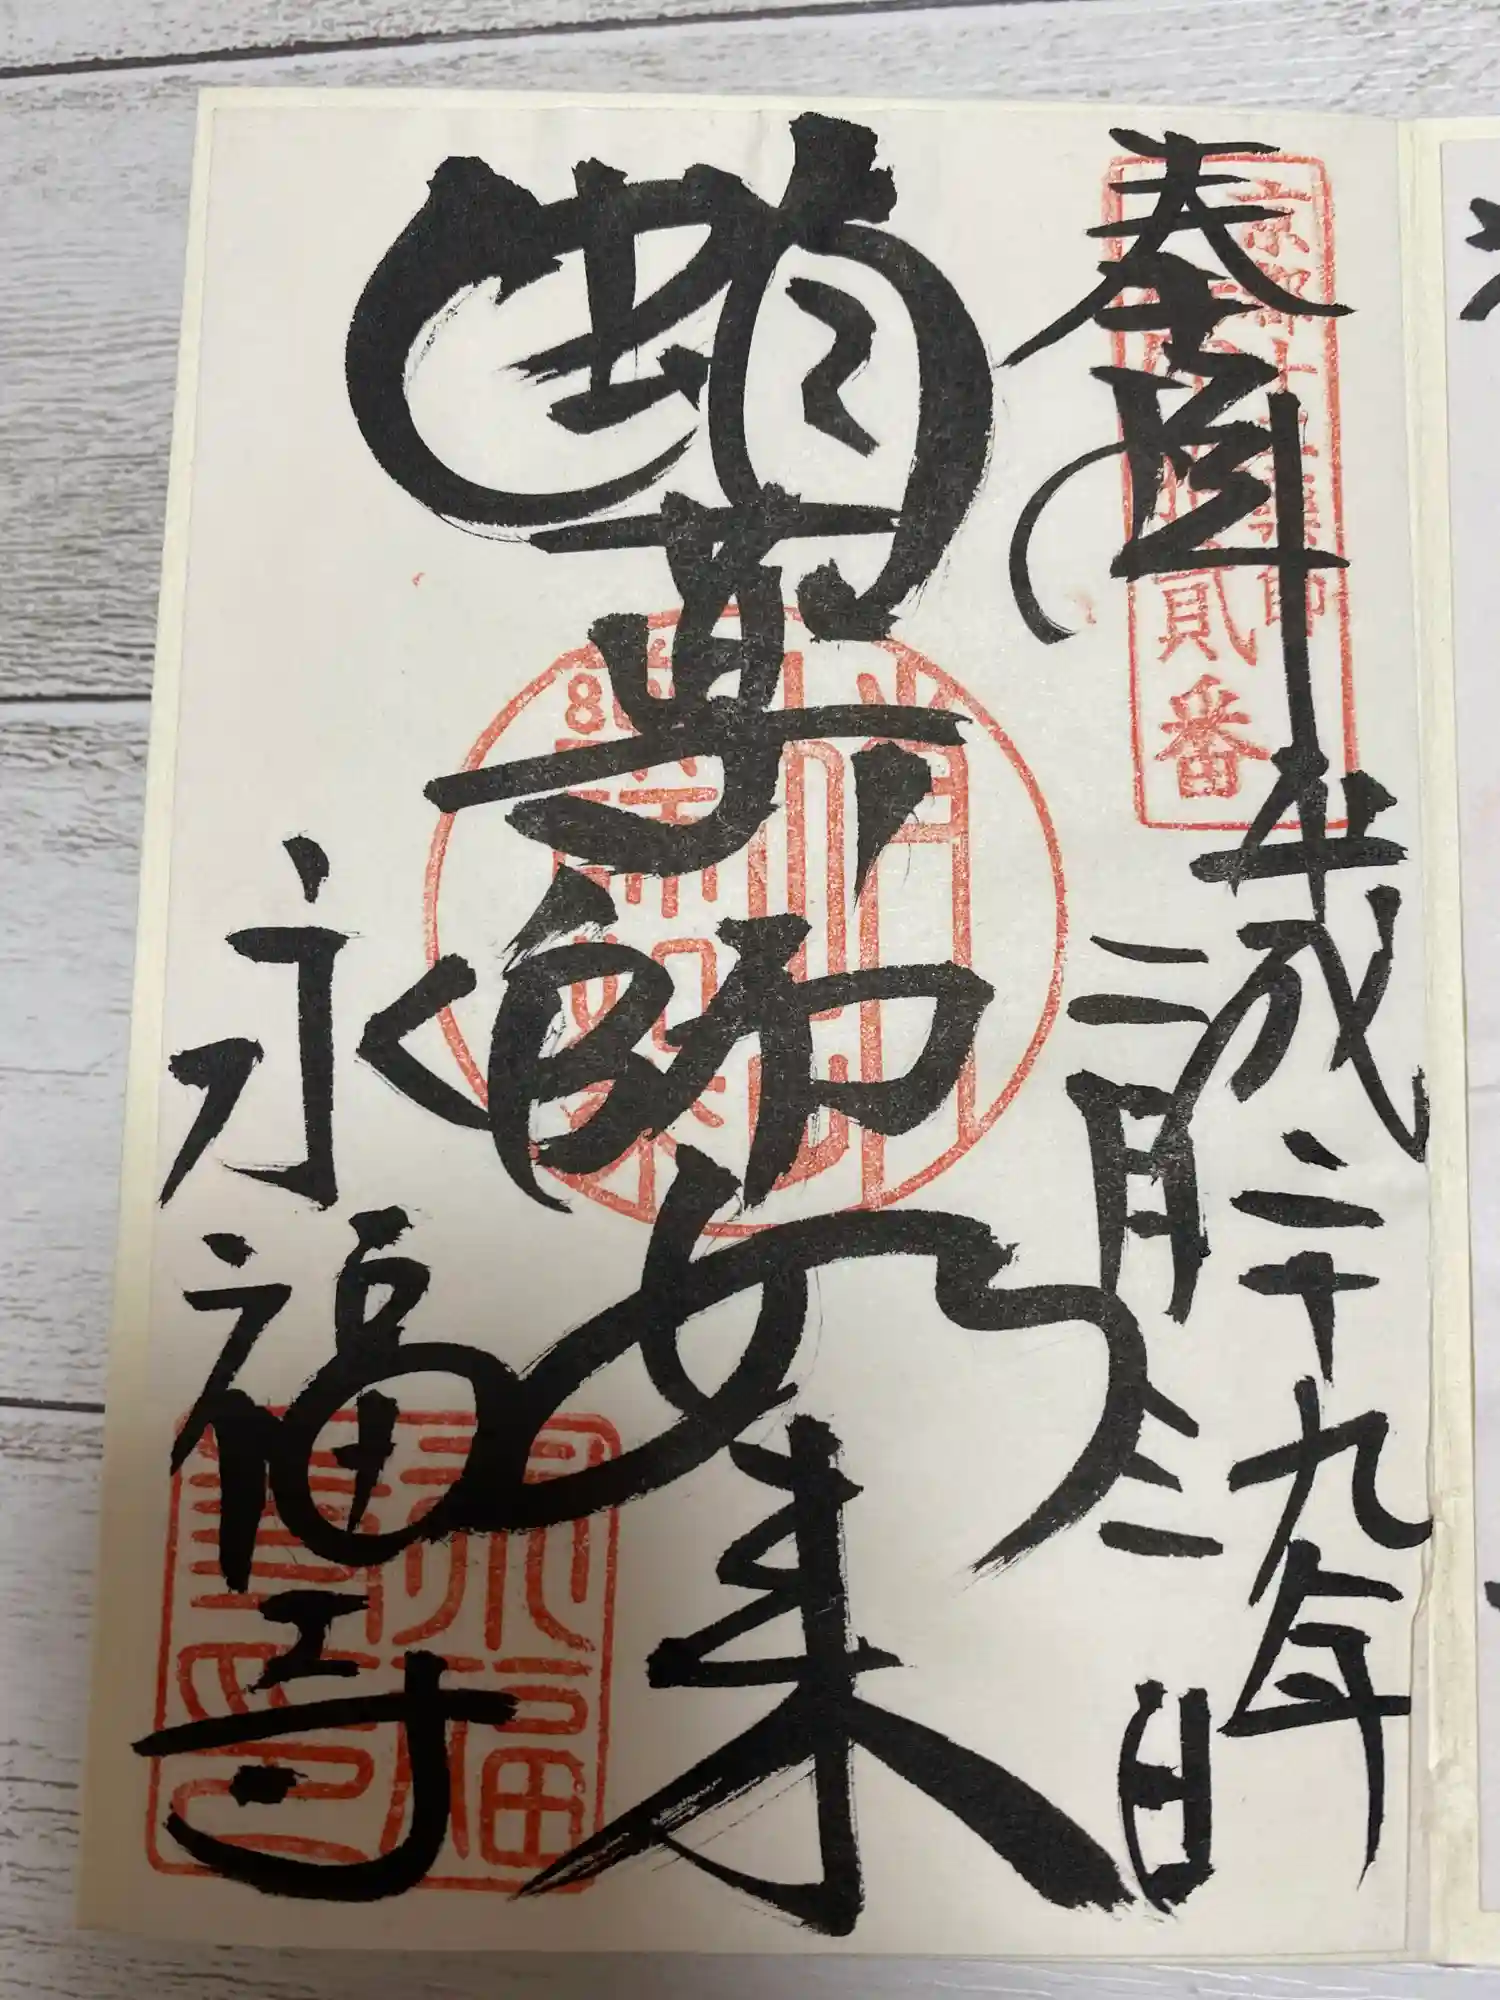 奉拝
平成二十九年
二月三日
蛸薬師如来
永福寺
京都十二薬師
貳番